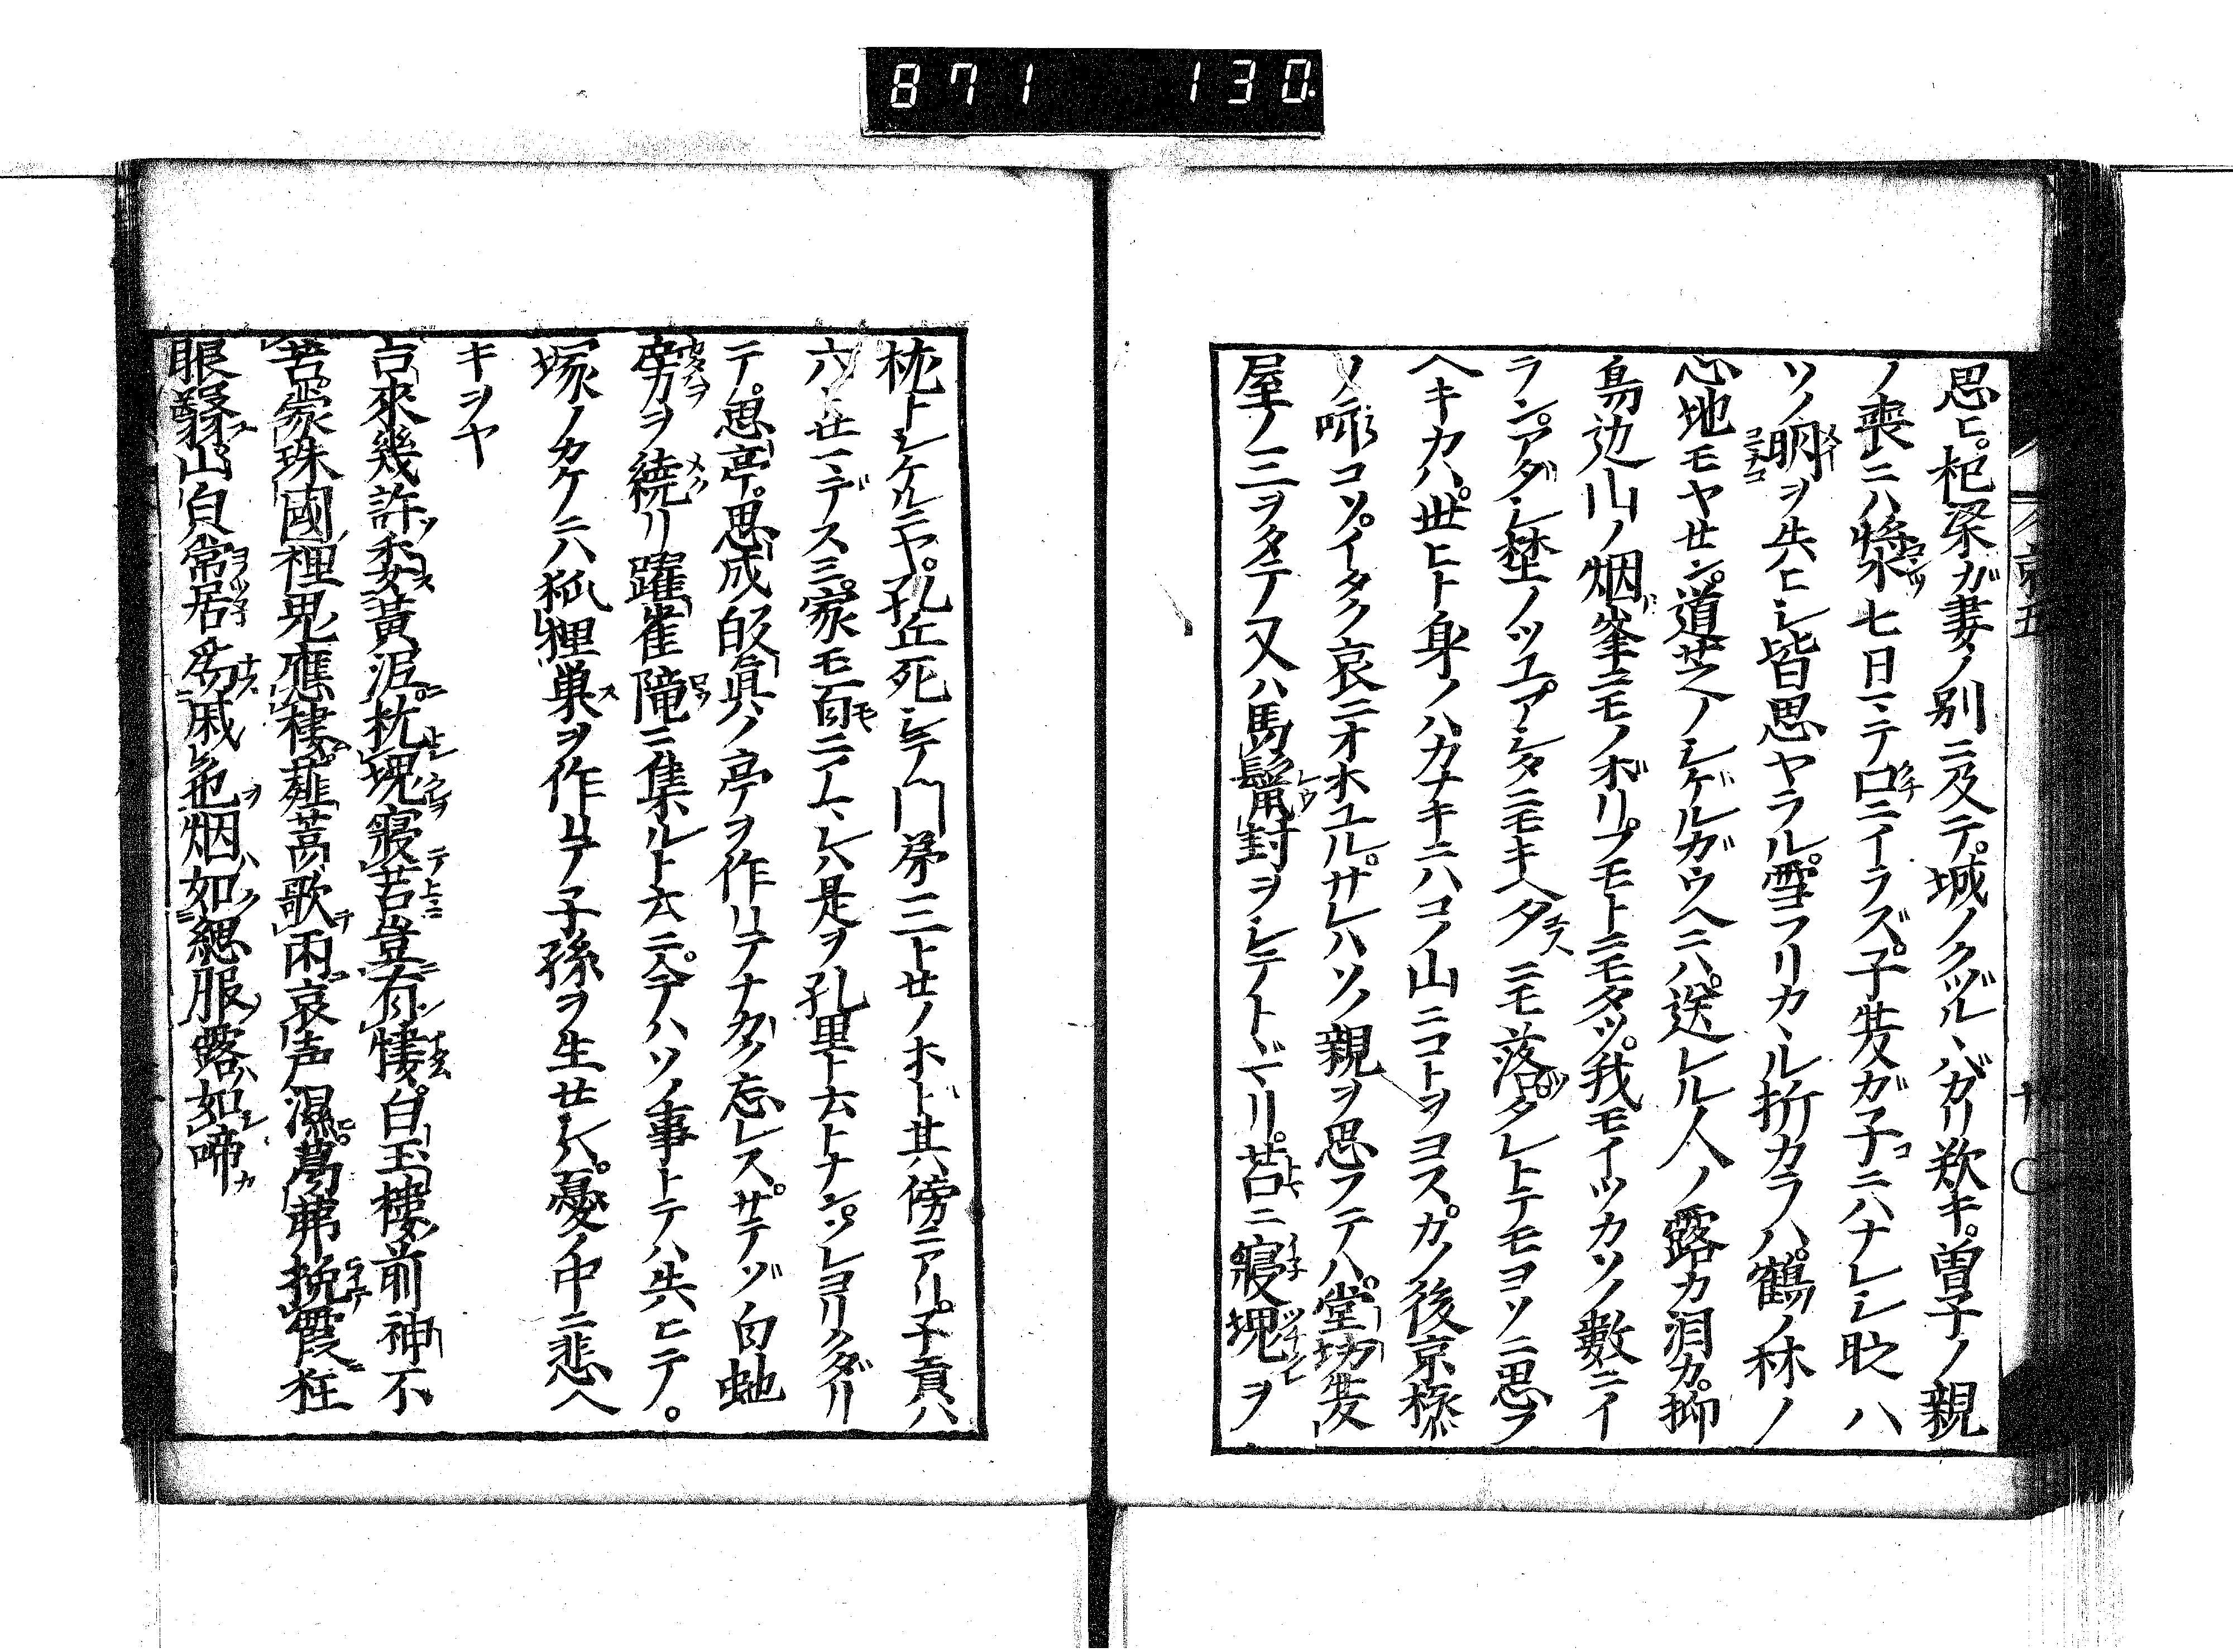 871 130
思ヒ。杞梁ガ妻ノ別ニ及テ。城ノクヅルヽバカリ歎キ。曽子ノ親
ノ喪ニハ漿水七日マテ口ニイラズ。子夏ガ子ニハナレシ時ハ
ソノ明ヲ失ヒシ皆思ヤラル。雪フリカヽル折カラハ。鶴ノ林ノ
心地モヤセン。道芝ノシゲルガウヘニハ。送レル人ノ露カ泪カ。抑
鳥辺山ノ烟峯ニモノボリ。フモトニモタツ。我モイツカソノ數ニイ
ラン。アダシ埜ノツユ。アシタニモキヘ夕ニモ落。タレトテモヨソニ思フ
ヘキカハ。世ヒト身ノハカナキニハコノ山ニコトヲヨス。カノ後京極
ノ詠コソ。イタク哀ニオホユル。サレハソノ親ヲ思フテハ。堂坊夏
屋ノ三ヲタテ又ハ馬鬛封ヲシテトドマリ。苫ニ寢塊ヲ
枕トシケルニヤ。孔丘死シテ門弟三トセノホド其傍ニアリ。子貢ハ
六トセマデスミ。家モ百ニアマレハ是ヲ孔里ト云トナン。ソレヨリクダリ
テ。思亭。思成皈眞ノ亭ヲ作リテナガク忘レス。サテゾ白虵
旁ヲ繞リ躍雀隴ニ集ルト云ニ。今ハソノ事トテハ失ヒテノ。
塚ノカケニハ狐狸巣ヲ作リテ子孫ヲ生セシハ。憂ノ中ニ悲ヘ
キヲヤ
古來幾許委黃泥枕塊寢苫豈有悽。白玉樓前神不
苦。蒙珠國裡鬼應棲。薤蒿歌雨哀声濕。葛茀挽霞狂
眼翳。山貟常居爲戚㒵烟如緦服露如啼